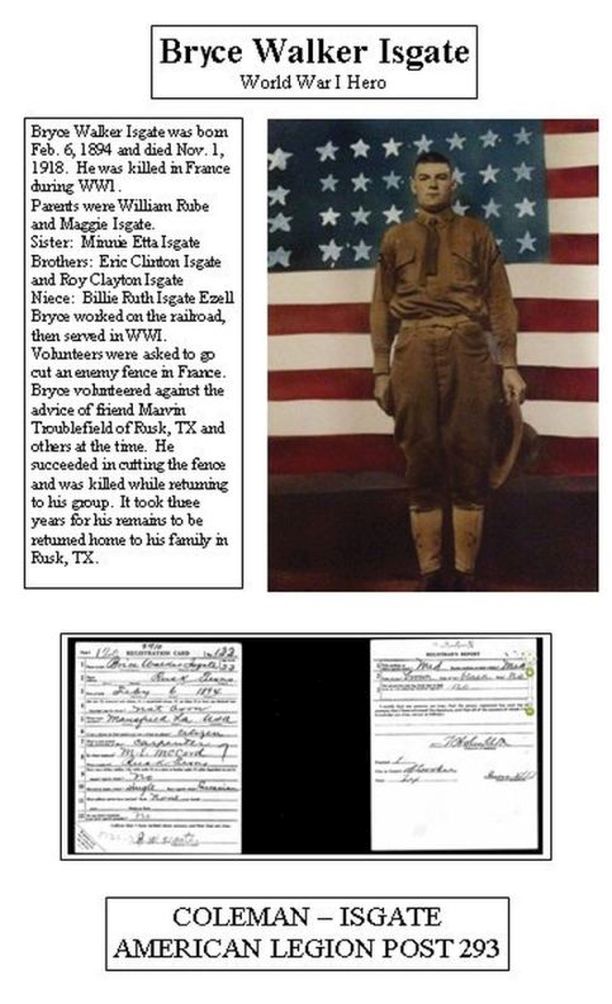 Bryce Walker Isgate
World War I Hero
Bryce Walker Isgate was born
Feb. 6, 1894 and died Nov. 1,
1918. He was killed in France
during WW1.
Parents were William Rube
and Maggie Isgate.
Sister: Minnie Etta Isgate
Brothers: Eric Clinton Isgate
and Roy Clayton Isgate
Niece: Billie Ruth Isgate Ezell
Bryce worked on the railroad,
then served in WWI.
Volunteers were asked to go
cut an enemy fence in France.
Bryce volunteered against the
advice of friend Marvin
Troublefield of Rusk, TX and
others at the time. He
succeeded in cutting the fence
and was killed while returning
to his group. It took three
years for his remains to be
returned home to his family in
Rusk, TX.
REGISTRATION CARD
Brice Walker Isgate
Rusk Texas
6 1894
Mansfield La. USA
Citizen
Carpenter
M. E. McCord
Rusk Texas
No
Single Caucasian
None
No
REGISTRAR'S REPORT
Med
Brown Black No
Cherokee
COLEMAN – ISGATE
AMERICAN LEGION POST 293